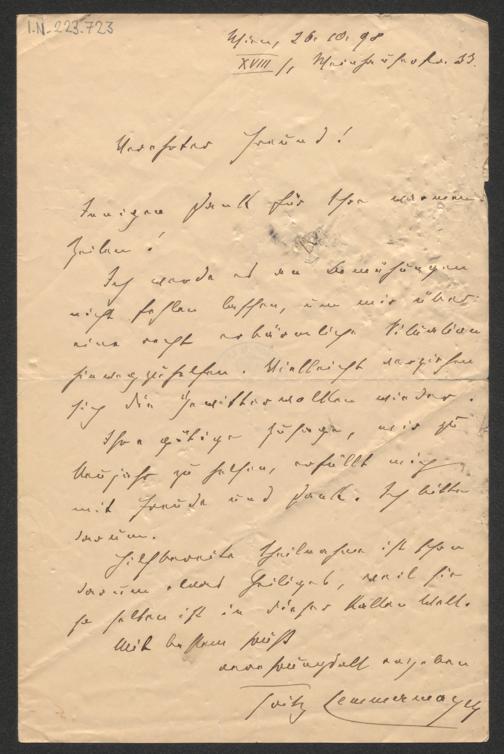 I.N.-223.723
Wien, 26. 10. 98
XVIII/1, Messerschmidtg. 33.
Verehrter Freund!
Innigen Dank für Ihre warmen
Zeilen!
Ich werde es an Bemühungen
nicht fehlen lassen, um mir über
eine recht erbärmliche Situation
hinwegzuhelfen. Vielleicht verziehen
sich die Gewitterwolken wieder.
Ihre gütige Zusage, mir zu
Neujahr zu helfen, erfüllt mich
mit Freude und Dank. Ich bitte
darum.
Hilfbereite Theilnahme ist schon
darum etwas Heiliges, weil sie
so selten ist in dieser kalten Welt.
Mit bestem Gruß
ergeben
Fritz Lemmermayer